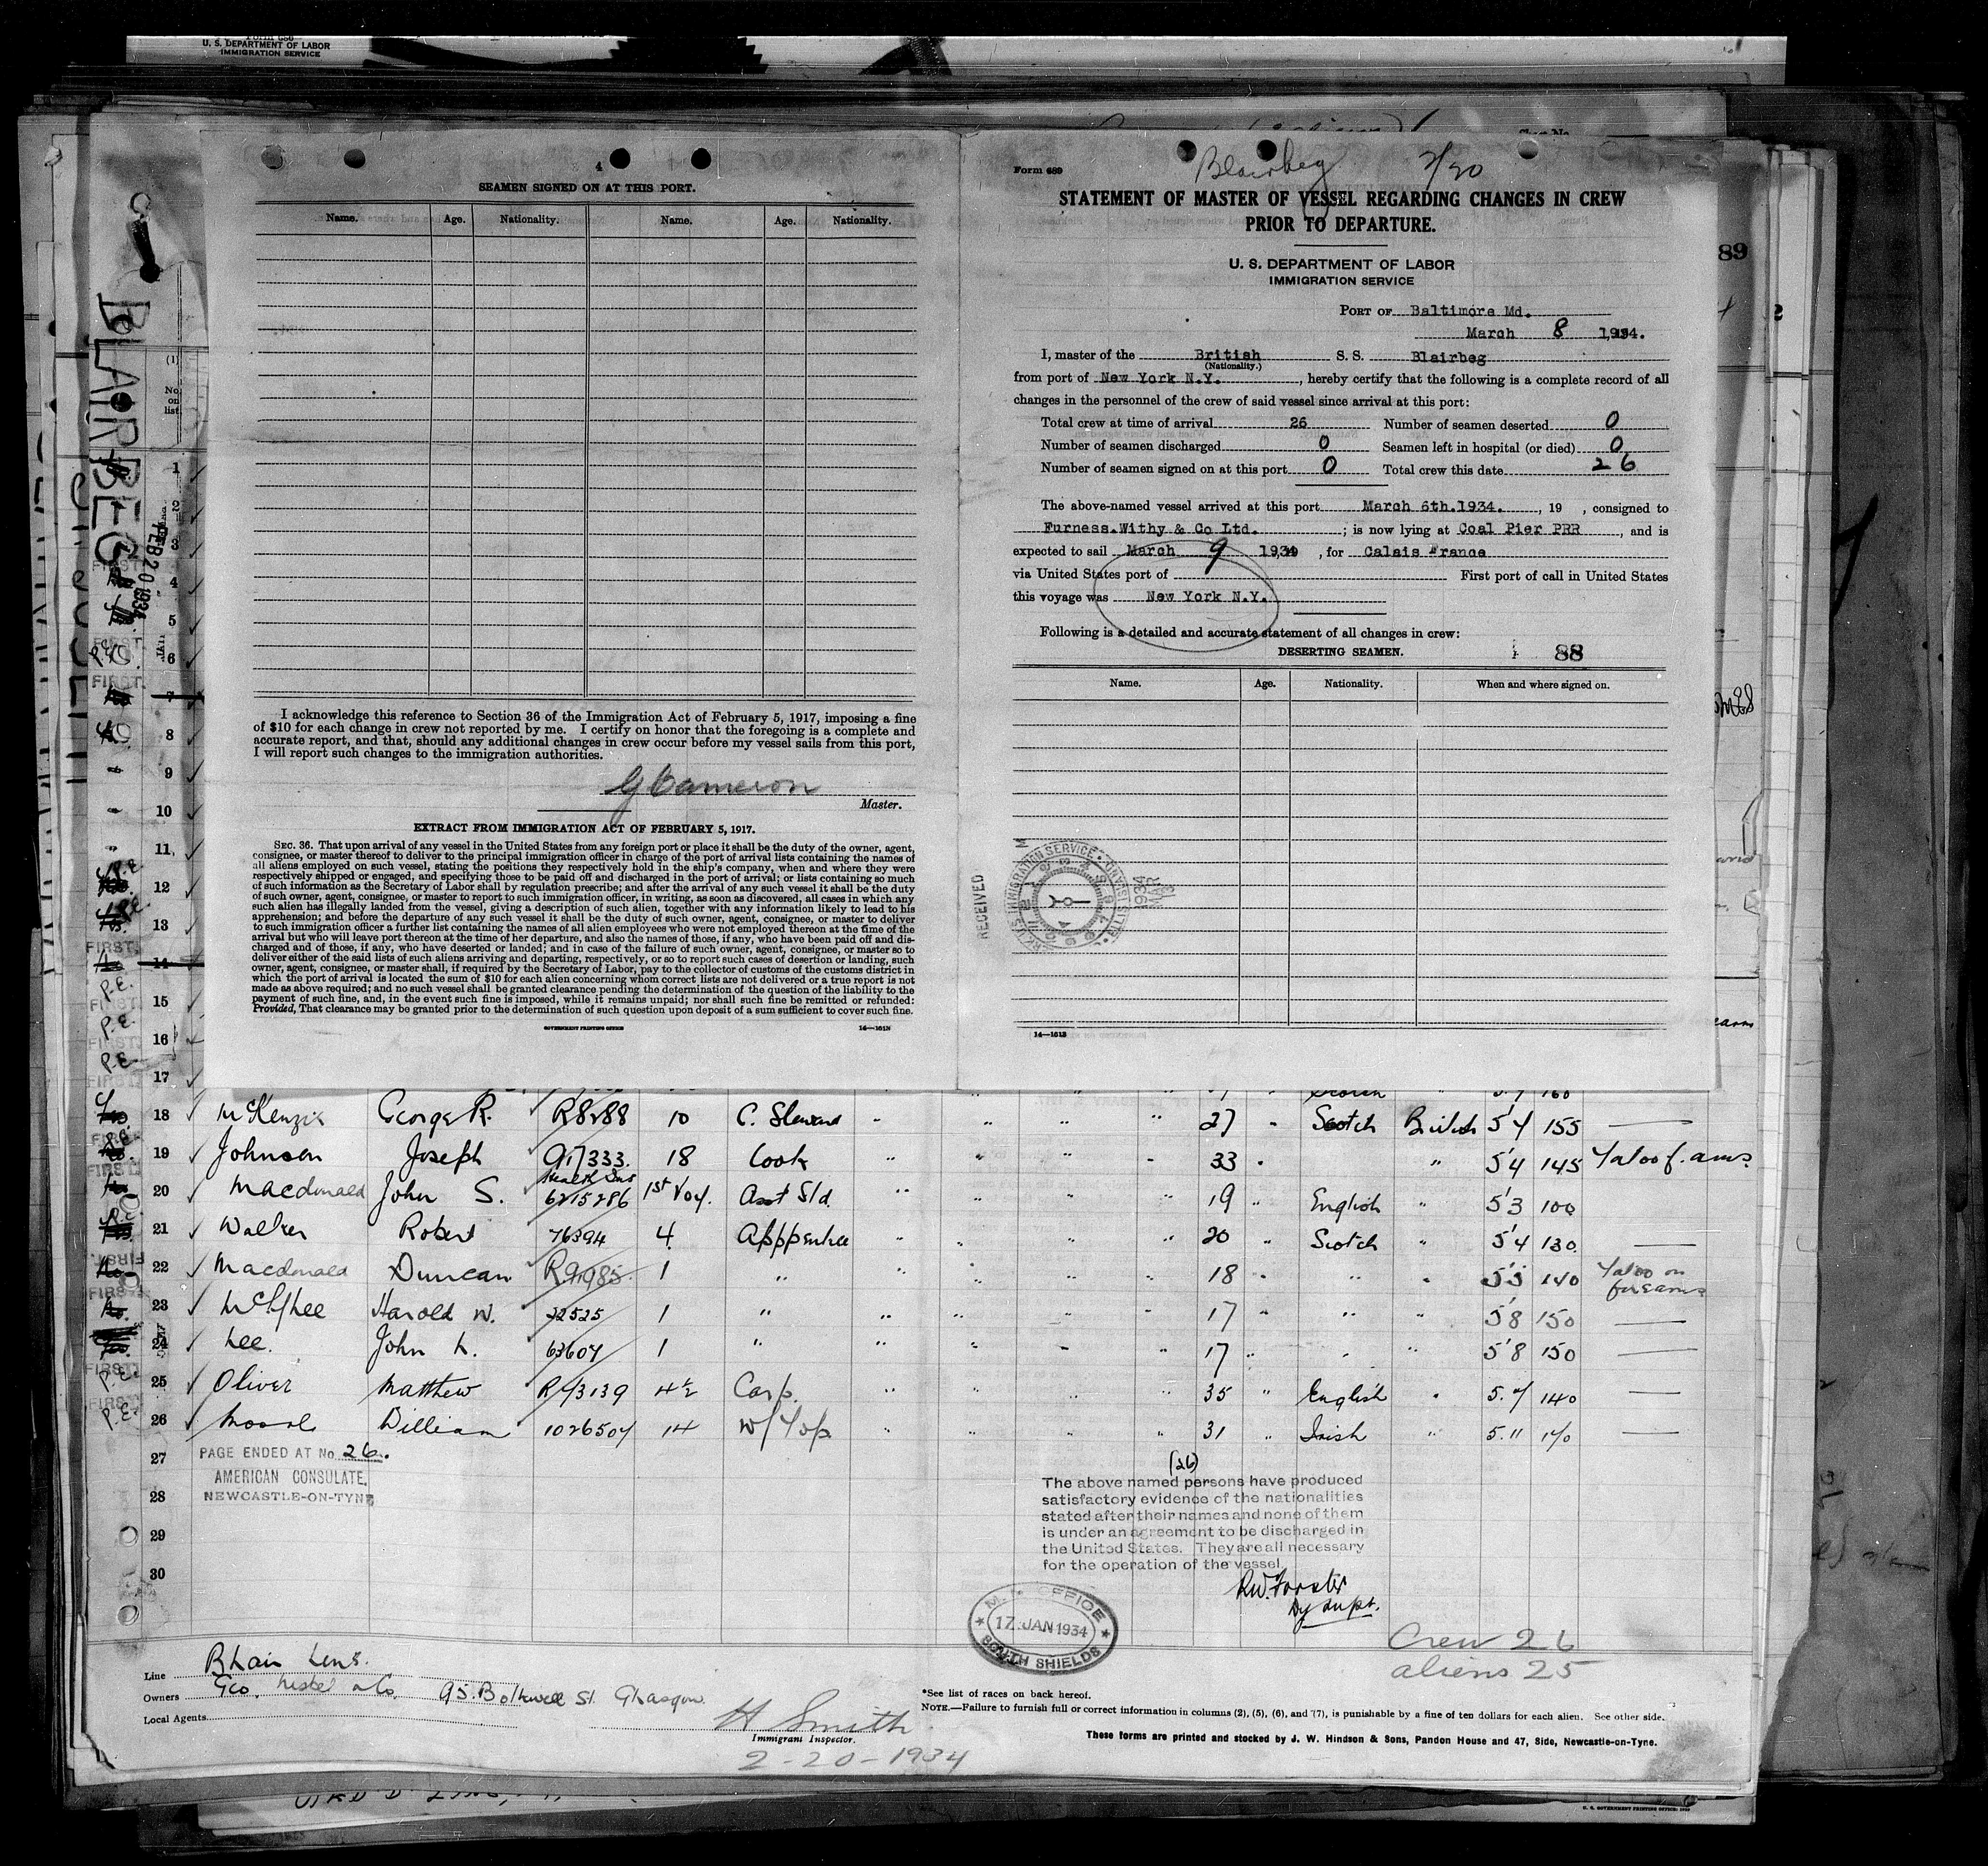 U. S. DEPARTMENT OF LABOR
IMMIGRATION SERVICE
4
SEAMEN SIGNED ON AT THIS PORT.
Name. Age. Nationality. Name. Age. Nationality.
I acknowledge this reference to Section 36 of the Immigration Act of February 5, 1917, imposing a fine
of $10 for each change in crew not reported by me. I certify on honor that the foregoing is a complete and
accurate report, and that, should any additional changes in crew occur before my vessel sails from this port,
I will report such changes to the immigration authorities.
G Cameron
Master.
EXTRACT FROM IMMIGRATION ACT OF FEBRUARY 5, 1917.
SEC. 36. That upon arrival of any vessel in the United States from any foreign port or place it shall be the duty of the owner, agent,
consignee, or master thereof to deliver to the principal immigration officer in charge of the port of arrival lists containing the names of
all aliens employed on such vessel, stating the positions they respectively hold in the ship's company, when and where they were
respectively shipped or engaged, and specifying those to be paid off and discharged in the port of arrival; or lists containing so much
of such information as the Secretary of Labor shall by regulation prescribe; and after the arrival of any such vessel it shall be the duty
of such owner, agent, consignee, or master to report to such immigration officer, in writing, as soon as discovered, all cases in which any
such alien has illegally landed from the vessel, giving a description of such alien, together with any information likely to lead to his
apprehension; and before the departure of any such vessel it shall be the duty of such owner, agent, consignee, or master to deliver
to such immigration officer a further list containing the names of all alien employees who were not employed thereon at the time of the
arrival but who will leave port thereon at the time of her departure, and also the names of those, if any, who have been paid off and dis-
charged and of those, if any, who have deserted or landed; and in case of the failure of such owner, agent, consignee, or master so to
deliver either of the said lists of such aliens arriving and departing, respectively, or so to report such cases of desertion or landing, such
owner, agent, consignee, or master shall, if required by the Secretary of Labor, pay to the collector of customs of the customs district in
which the port of arrival is located the sum of $10 for each alien concerning whom correct lists are not delivered or a true report is not
made as above required; and no such vessel shall be granted clearance pending the determination of the question of the liability to the
payment of such fine, and, in the event such fine is imposed, while it remains unpaid; nor shall such fine be remitted or refunded:
Provided, That clearance may be granted prior to the determination of such question upon deposit of a sum sufficient to cover such fine.
GOVERNMENT PRINTING OFFICE 14—1613
Form 689
Blairbeg 2/20
STATEMENT OF MASTER OF VESSEL REGARDING CHANGES IN CREW
PRIOR TO DEPARTURE.
U. S. DEPARTMENT OF LABOR
IMMIGRATION SERVICE
PORT OF Baltimore Md.
March 8 1934.
I, master of the British S. S. Blairbeg
(Nationality.)
from port of New York N.Y., hereby certify that the following is a complete record of all
changes in the personnel of the crew of said vessel since arrival at this port:
Total crew at time of arrival 26 Number of seamen deserted 0
Number of seamen discharged 0 Seamen left in hospital (or died) 0
Number of seamen signed on at this port 0 Total crew this date 26
The above-named vessel arrived at this port March 6th.1934., 19 , consigned to
Furness.Withy & Co Ltd. ; is now lying at Coal Pier PRR , and is
expected to sail March 9 1934 , for Calais France
via United States port of First port of call in United States
this voyage was New York N.Y.
Following is a detailed and accurate statement of all changes in crew:
DESERTING SEAMEN. 88
Name. Age. Nationality. When and where signed on.
RECEIVED
MAR 13 1934
14—1613
89
BLAIRBEG
FEB 20 1934
(1)
No. on list
1
2
3
4
5
6
7
8
9
10
11
12
13
14
15
16
17
18 McKenzie George R. R8288 10 C. Steward " " " " 27 " Scotch British 5'4 155 —
19 Johnson Joseph 917333 18 Cook " " " " 33 " " 5'4 145
20 Macdonald John S. 6215286 1st Voy. Asst Std. " " " " 19 " English " 5'3 100
21 Walker Robert 76394 4 Appprentice " " " " 20 " Scotch " 5'4 130 —
22 Macdonald Duncan R91985 1 " " " " " 18 " " " 5'5 140 Tatoo on forearms
23 McPhee Harold W. 22525 1 " " " " " 17 " " " 5'8 150 —
24 Lee. John L. 63604 1 " " " " " 17 " " " 5'8 150 —
25 Oliver Matthew 43139 Carp. " " " " 35 " English " 5.7 140 —
26 William 1026504 14 " " " " 31 " Irish " 5.11 170 —
27 PAGE ENDED AT No. 26.
AMERICAN CONSULATE,
28 NEWCASTLE-ON-TYNE
29
30
(26)
The above named persons have produced
satisfactory evidence of the nationalities
stated after their names and none of them
is under an agreement to be discharged in
the United States. They are all necessary
for the operation of the vessel.
R.W. Forster
Dy Supt.
17 JAN 1934
SOUTH SHIELDS
Crew 26
aliens 25
Line
Owners Geo. Nisbet & Co. 95. Bothwell St. Glasgow.
Local Agents
H Smith
Immigrant Inspector.
2-20-1934
*See list of races on back hereof.
NOTE.—Failure to furnish full or correct information in columns (2), (5), (6), and (7), is punishable by a fine of ten dollars for each alien. See other side.
These forms are printed and stocked by J. W. Hindson & Sons, Pandon House and 47, Side, Newcastle-on-Tyne.